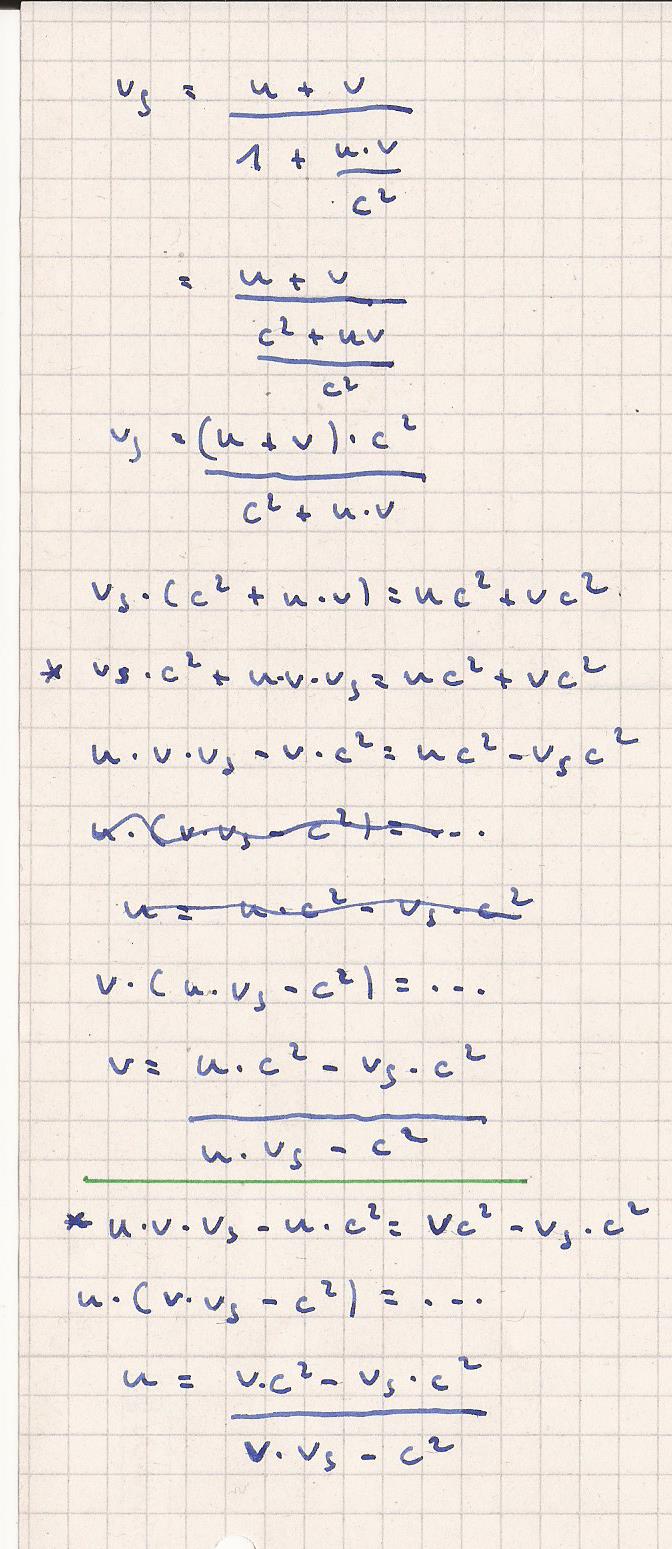 v_s = (u + v) / (1 + (u·v)/c²)
= (u + v) / ((c² + uv)/c²)
v_s = ((u + v)·c²) / (c² + u·v)
v_s·(c² + u·v) = uc² + vc²
* v_s·c² + u·v·v_s = uc² + vc²
u·v·v_s - v·c² = uc² - v_s c²
u·(v·v_s - c²) = ...
u = u·c² - v_s·c²
v·(u·v_s - c²) = ...
v = (u·c² - v_s·c²) / (u·v_s - c²)
* u·v·v_s - u·c² = vc² - v_s·c²
u·(v·v_s - c²) = ...
u = (v·c² - v_s·c²) / (v·v_s - c²)